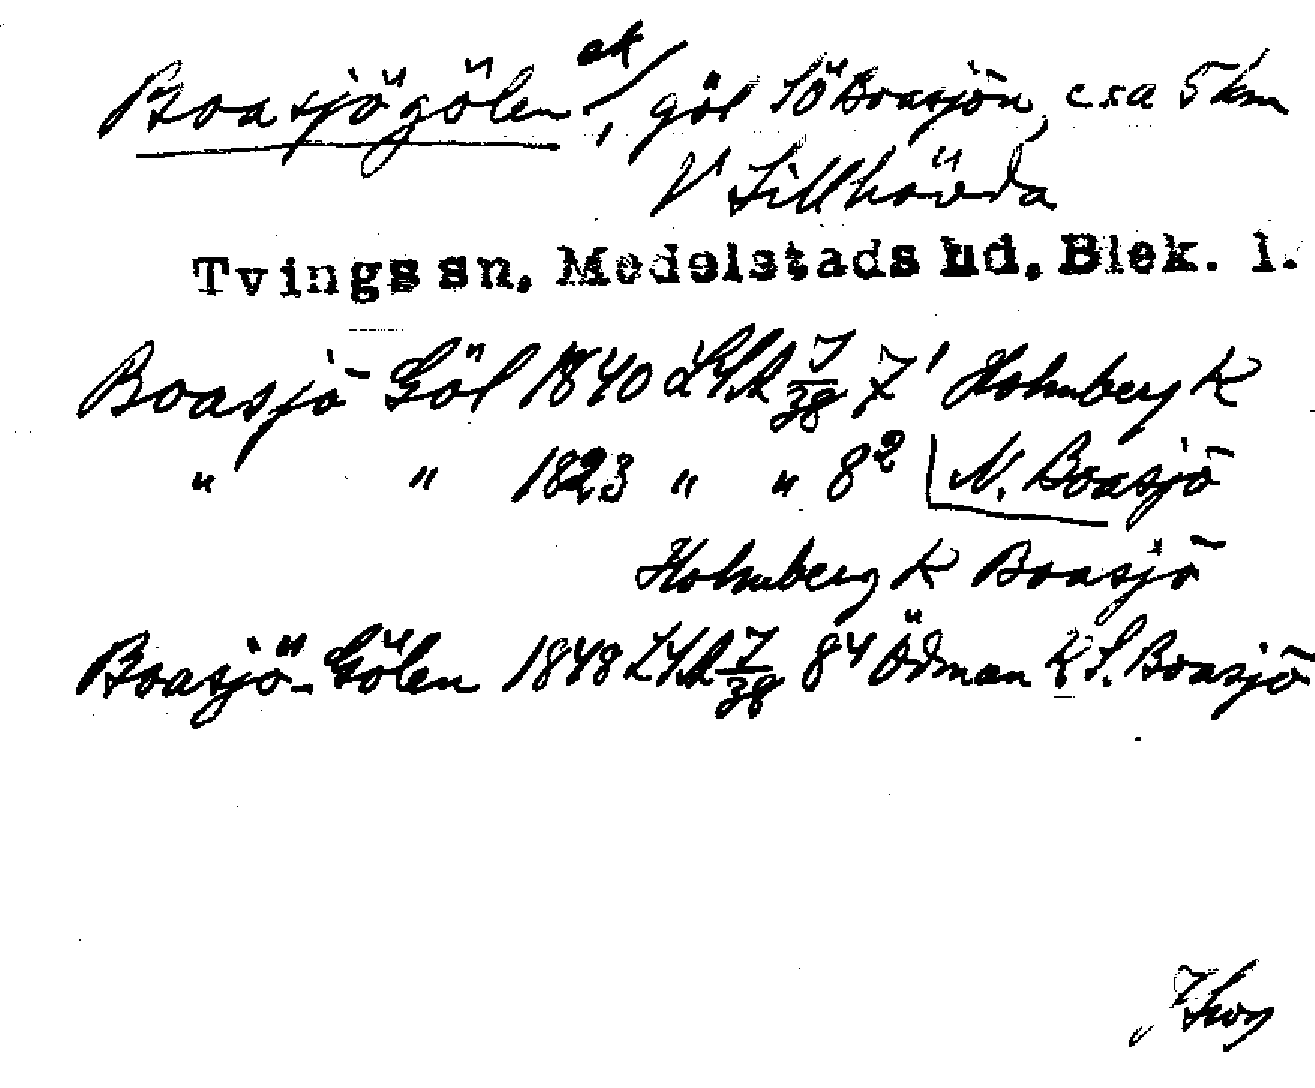 Boasjögölen ek, göl SÖ Boasjön, c:a 5 km
V Tillhövda
Tvings sn, Medelstads hd, Blek. l.
Boasjö Göl 1840 LSA 7/38 7¹ Holmberg K
" " 1823 " " 8² N. Boasjö
Holmberg K Boasjö
Boasjö-Gölen 1848 LSA 7/38 84 Ödman K S. Boasjö